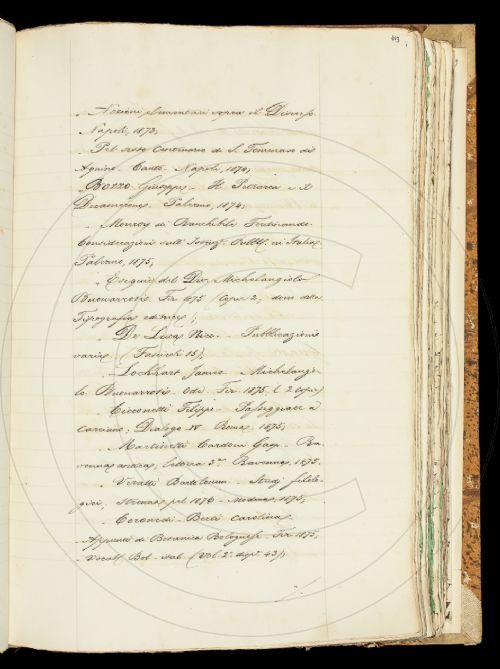 403
„ Nozioni elementari sopra il Discorso
Napoli, 1873,
„ Pel sesto Centenario di S. Tommaso di
Aquino - Canto - Napoli, 1874,
„ Bozzo Giuseppe - Il Petrarca e il
Decamerone. Palermo, 1874,
„ Monroy di Ranchibile Ferdinando -
Considerazioni sull' Pubbl. in Italia.
Palermo, 1875,
„ Esequie del Div. Michelangiolo
Buonarroti. Fir. 1875 (copie 2, dono della
Tipografia editrice);
„ De Luca Nico. - Pubblicazioni
varie (Fascicoli 15),
„ Lockhart James - Michelangio-
lo Buonarroti - Ode. Fir. 1875, (2 copie)
„ Cicconetti Filippo - Passeggiare a
Corciano; Dialogo IV. Roma, 1875,
„ Martinetti Cardoni Gasp. - Ra-
venna antica, lettera 3ª Ravenna, 1875.
„ Veratti Bartolomeo - Studj filolo-
gici, Strenna pel 1876 - Modena, 1875,
„ Coronedi - Berti Carolina
Appunti di Botanica Bolognese. Fir. 1875,
- Vocab. Bol - ital. (Vol. 2° disp. 43),